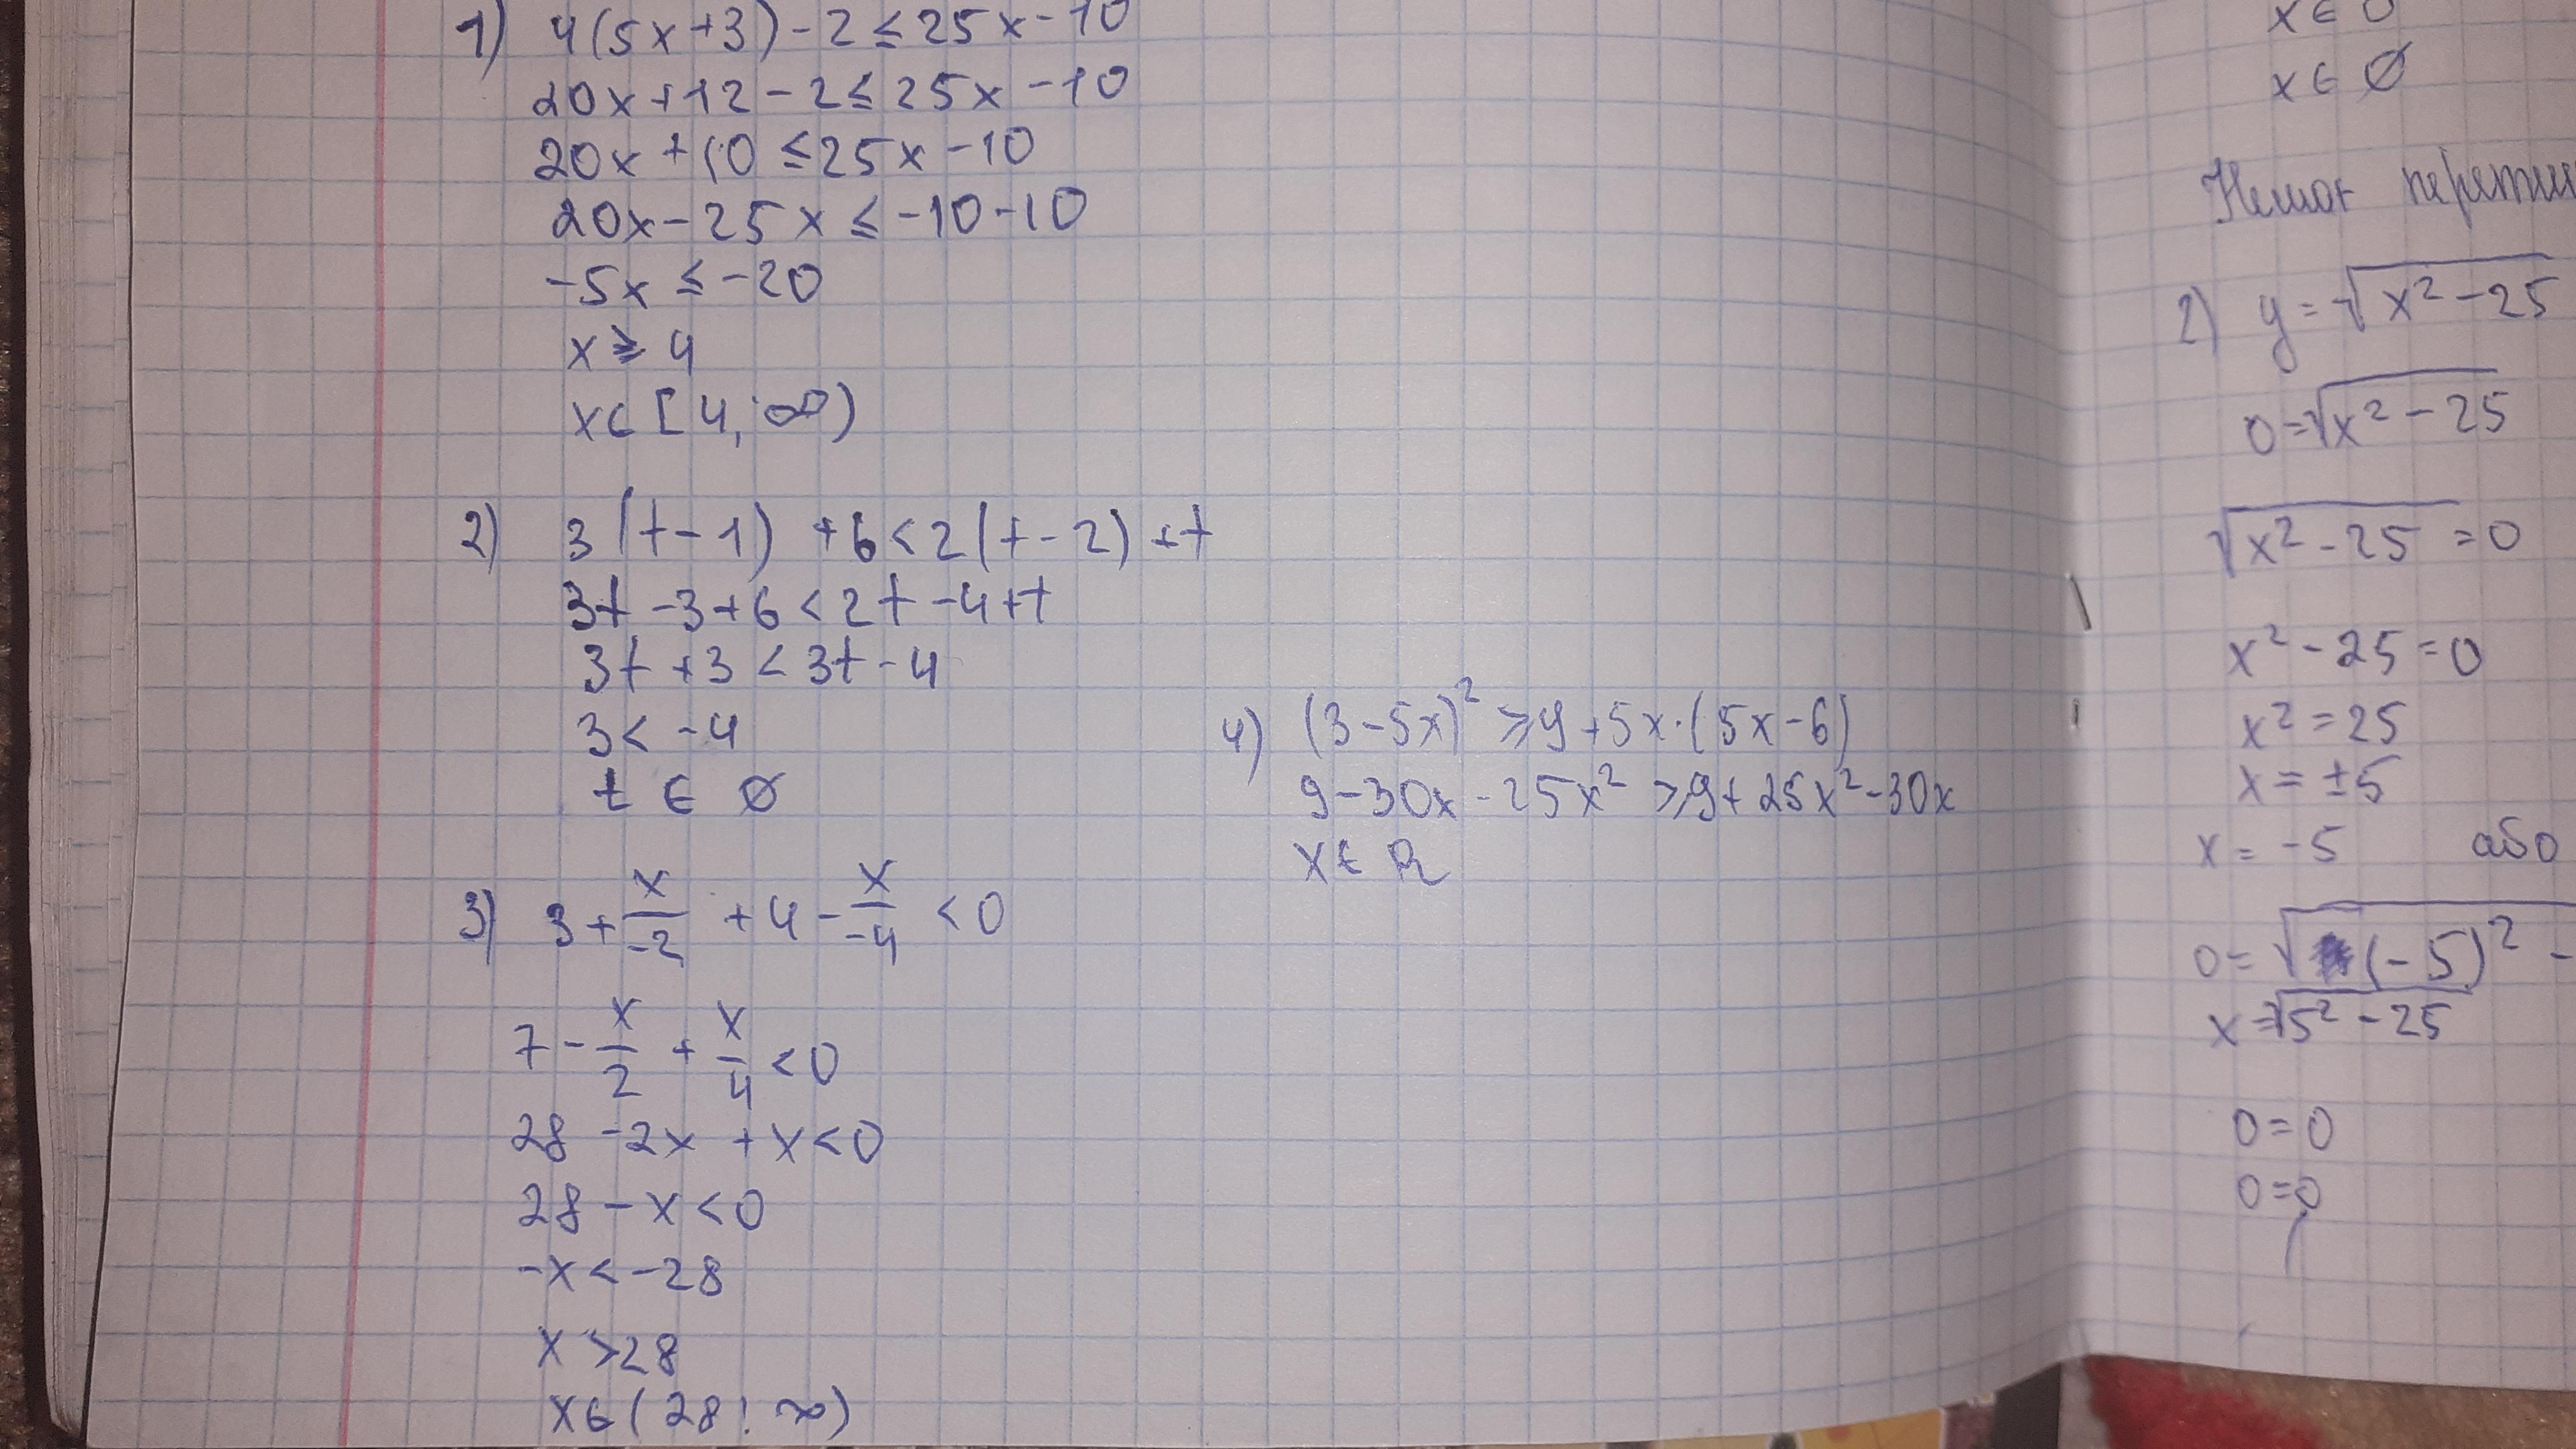 1) 4(5x+3)-2≤25x-10
20x+12-2≤25x-10
20x+10≤25x-10
20x-25x≤-10-10
-5x≤-20
x≥4
x∈[4;∞)
2) 3(t-1)+6<2(t-2)+t
3t-3+6<2t-4+t
3t+3<3t-4
3<-4
t∈∅
3) 3+x/-2+4-x/-4<0
7-x/2+x/4<0
28-2x+x<0
28-x<0
-x<-28
x>28
x∈(28;∞)
4) (3-5x)²≥9+5x·(5x-6)
9-30x-25x²≥9+25x²-30x
x∈R
x∈0
x∈∅
2) y=√x²-25
0=√x²-25
√x²-25=0
x²-25=0
x²=25
x=±5
x=-5 або
0=√(-5)²-
x=√5²-25
0=0
0=0